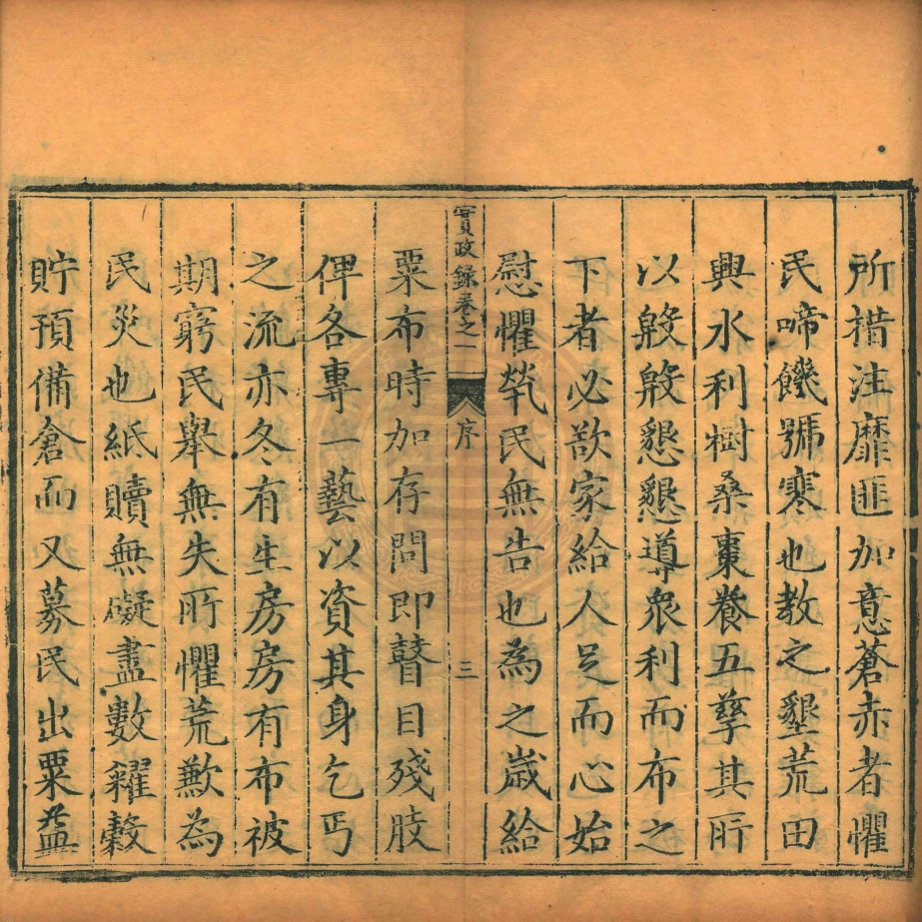 所措注靡匪加意蒼赤者懼
民啼饑號寒也教之墾荒田
興水利樹桑棗養五孳其所
以慇慇懇懇導衆利而布之
下者必欲家給人足而心始
慰懼煢民無告也為之歲給
實政錄卷之一
序
三
粟布時加存問即瞽目殘肢
俾各專一藝以資其身乞丐
之流亦冬有生房房有布被
期窮民舉無失所懼荒歉為
民災也紙贖無礙盡數糴穀
貯預備倉而又募民出粟益